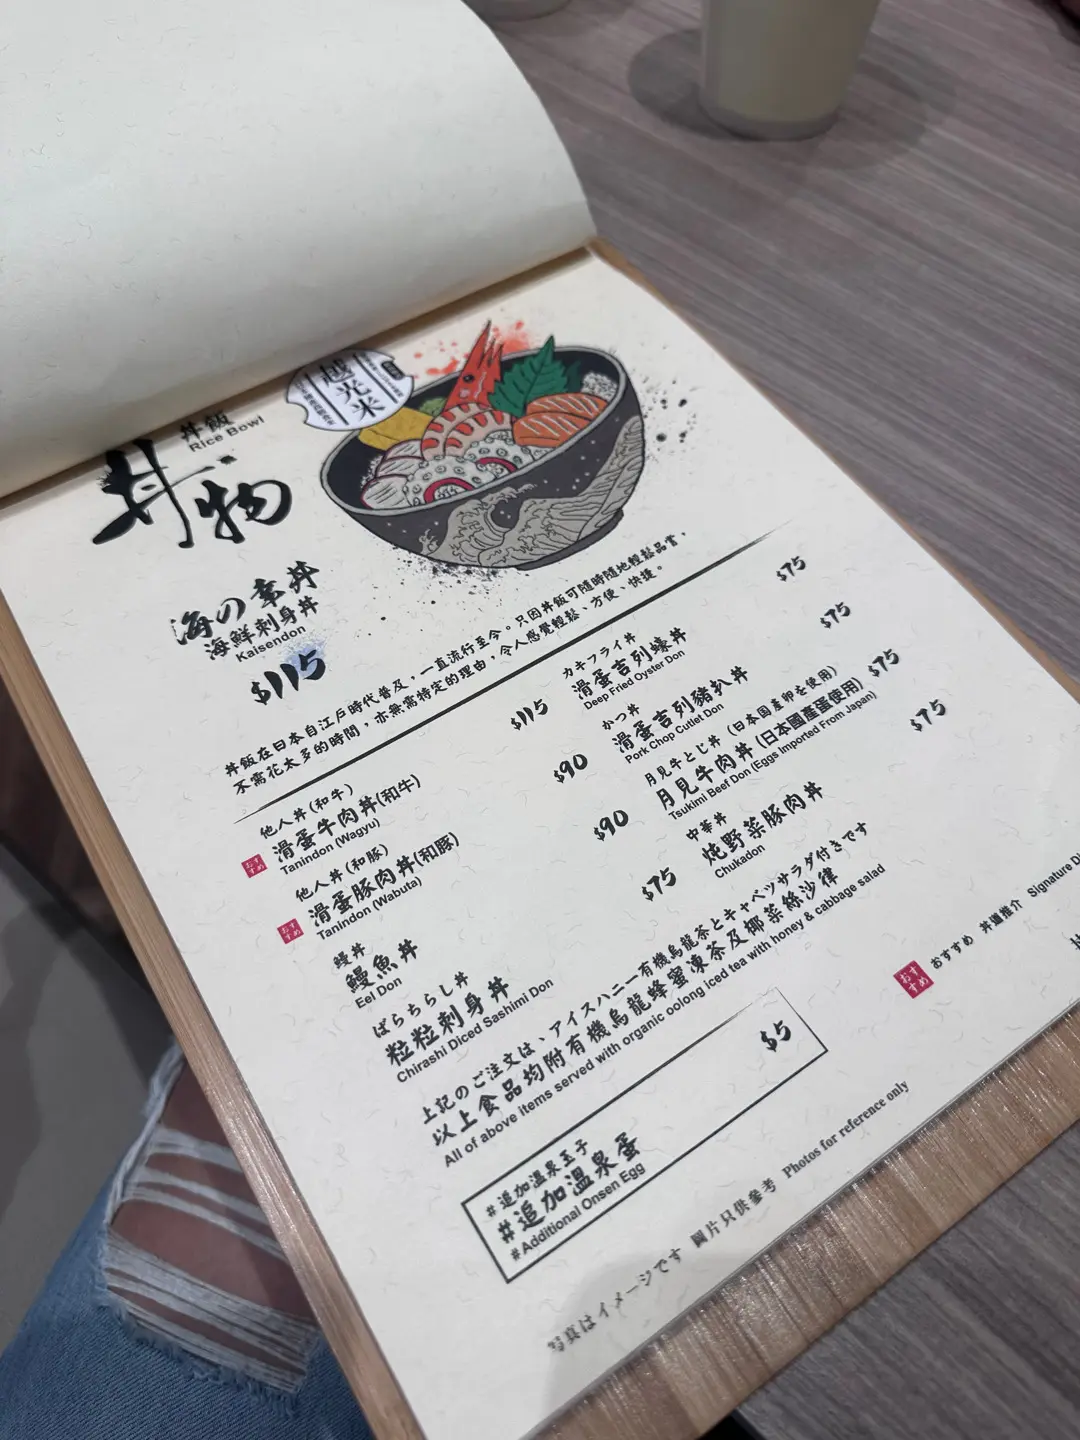 丼飯
Rice Bowl
丼物
越光米
海の幸丼
海鮮刺身丼
Kaisendon
$115
丼飯在日本自江戶時代普及,一直流行至今。只因丼飯可隨時隨地輕鬆品嘗,
不需花太多的時間,亦無需特定的理由,令人感覺輕鬆、方便、快捷。
他人丼(和牛)
おすすめ
滑蛋牛肉丼(和牛) $115
Tanindon (Wagyu)
他人丼(和豚)
おすすめ
滑蛋豚肉丼(和豚) $90
Tanindon (Wabuta)
鰻丼
鰻魚丼 $90
Eel Don
ばらちらし丼
粒粒刺身丼 $75
Chirashi Diced Sashimi Don
カキフライ丼
滑蛋吉列蠔丼 $75
Deep Fried Oyster Don
かつ丼
滑蛋吉列豬扒丼 $75
Pork Chop Cutlet Don
月見牛とじ丼 (日本国産卵を使用)
月見牛肉丼 (日本國產蛋使用) $75
Tsukimi Beef Don (Eggs Imported From Japan)
中華丼
炖野菜豚肉丼 $75
Chukadon
上記のご注文は、アイスハニー有機烏龍茶とキャベツサラダ付きです
以上食品均附有機烏龍蜂蜜凍茶及椰菜絲沙律
All of above items served with organic oolong iced tea with honey & cabbage salad
#追加温泉玉子
#追加溫泉蛋 $5
#Additional Onsen Egg
おすすめ
おすすめ 丼道推介 Signature
写真はイメージです 圖片只供參考 Photos for reference only